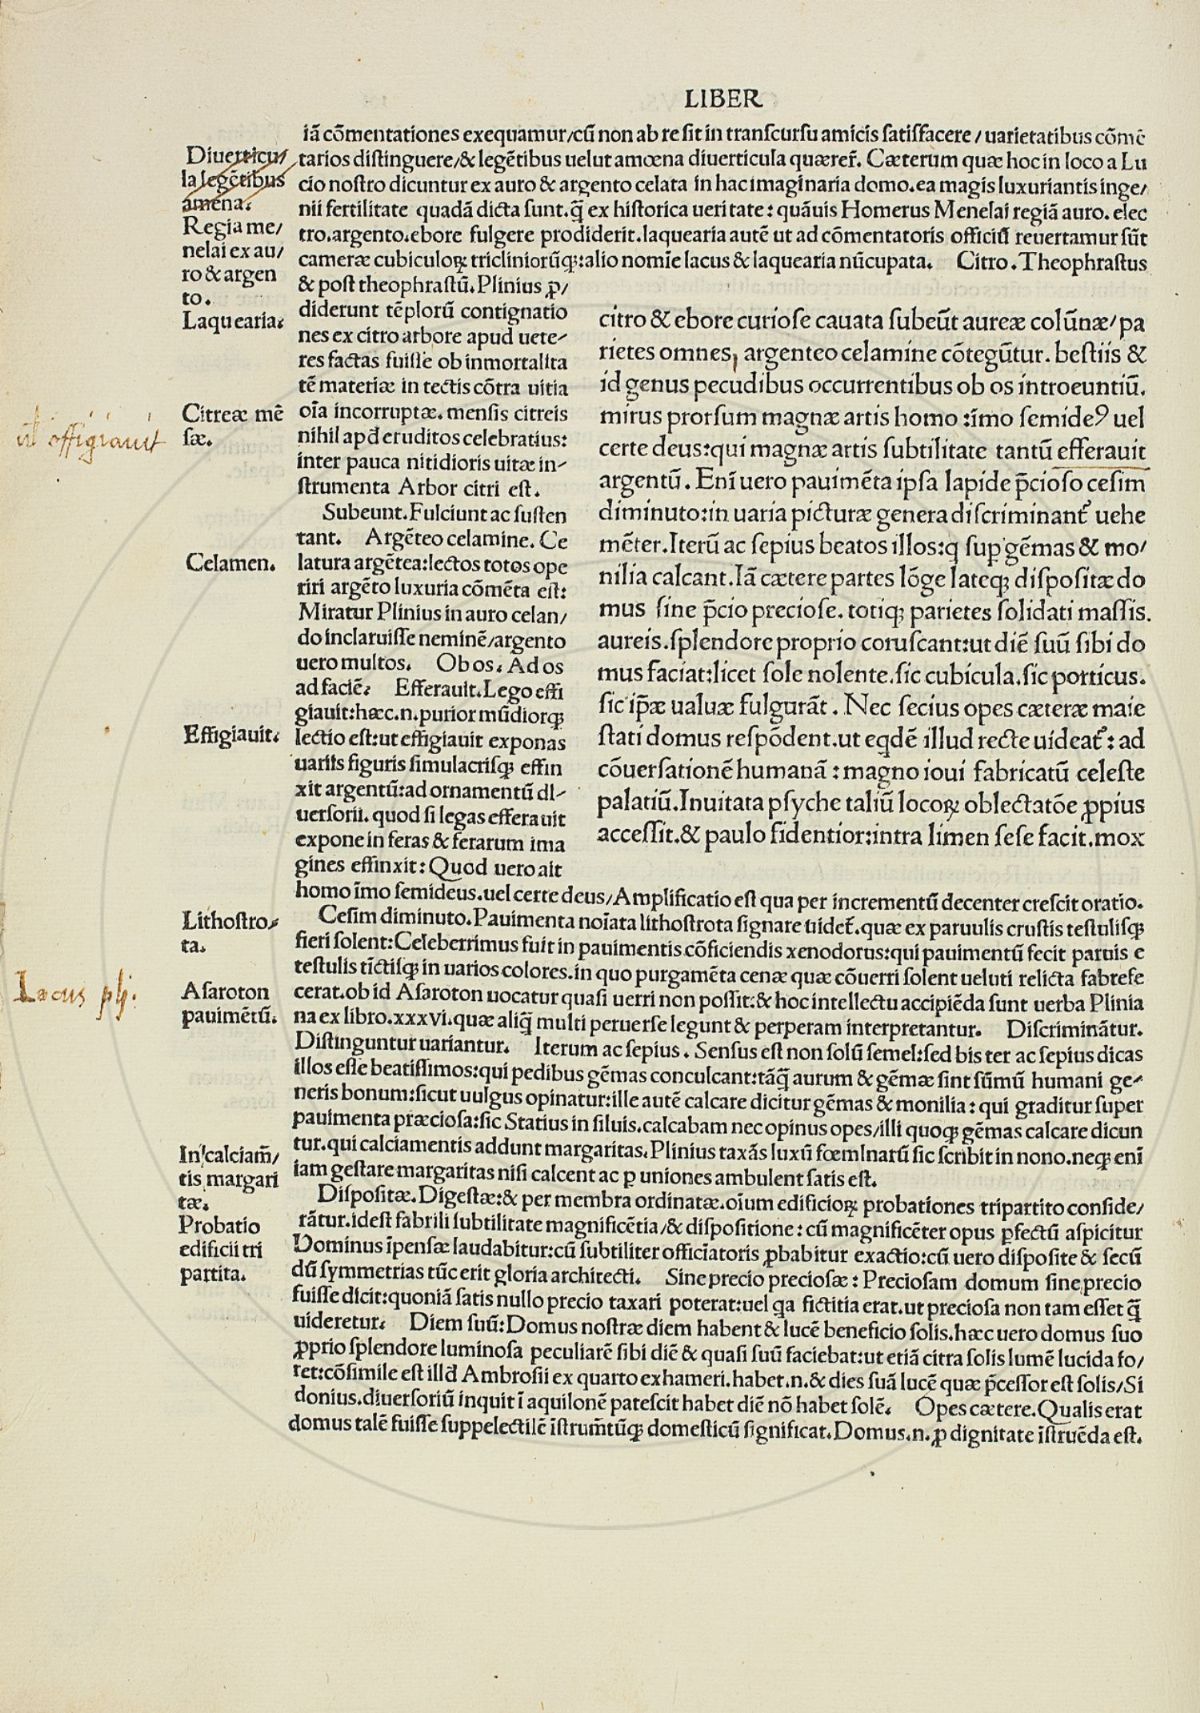 LIBER
iā cōmentationes exequamur/cū non ab re sit in transcursu amicis satisfacere/uarietatibus cōmē
tarios distinguere/& legētibus uelut amœna diuerticula quæreret̃. Cæterum quæ hoc in loco a Lu
cio nostro dicuntur ex auro & argento celata in hac imaginaria domo.ea magis luxuriantis inge/
nii fertilitate quadā dicta sunt.q̄ ex historica ueritate: quāuis Homerus Menelai regiā auro.elec
tro.argento.ebore fulgere prodiderit.laquearia autē ut ad cōmentatoris officiū reuertamur sūt
cameræ cubiculoꝝ tricliniorūqꝫ:alio nomīe lacus & laquearia nūcupata. Citro.Theophrastus
& post theophrastū.Plinius ꝓ/
diderunt tēplorū contignatio
nes ex citro arbore apud uete-
res factas fuisse ob inmortalita
tē materiæ in tectis cōtra uitia
oīa incorruptæ.mensis citreis
nihil apđ eruditos celebratius:
inter pauca nitidioris uitæ in-
strumenta Arbor citri est.
Subeunt.Fulciunt ac susten
tant. Argēteo celamine. Ce
latura argētea:lectos totos ope
riri argēto luxuria cōmēta est:
Miratur Plinius in auro celan/
do inclaruisse neminē/argento
uero multos. Ob os. Ad os
ad faciē. Efferauit.Lego effi
giauit:hæc.n.purior mūdiorqꝫ
lectio est:ut effigiauit exponas
uariis figuris simulacrisqꝫ effin
xit argentū:ad ornamentū di-
uersorii.quod si legas efferauit
expone in feras & ferarum ima
gines effinxit: Quod uero ait
citro & ebore curiose cauata subeūt aureæ colūnæ/pa
rietes omnes, argenteo celamine cōtegūtur. bestiis &
id genus pecudibus occurrentibus ob os introeuntiū.
mirus prorsum magnæ artis homo :īmo semideꝰ uel
certe deus:qui magnæ artis subtilitate tantū efferauit
argentū. Enī uero pauimēta ipsa lapide p̄cioso cesim
diminuto:in uaria picturæ genera discriminant̃ uehe
mēter.Iterū ac sepius beatos illos:q sup gēmas & mo/
nilia calcant.Iā cætere partes lōge lateqꝫ dispositæ do
mus sine p̄cio preciose. totiqꝫ parietes solidati massis.
aureis.splendore proprio coruscant:ut diē suū sibi do
mus faciat:licet sole nolente.sic cubicula.sic porticus.
sic ip̄æ ualuæ fulgurāt. Nec secius opes cæteræ maie
stati domus respōdent.ut eqdē illud recte uideat̃: ad
cōuersationē humanā : magno ioui fabricatū celeste
palatiū.Inuitata psyche taliū locoꝝ oblectatōe ꝓpius
accessit.& paulo fidentior:intra limen sese facit.mox
homo īmo semideus.uel certe deus/Amplificatio est qua per incrementū decenter crescit oratio.
Cesim diminuto.Pauimenta noīata lithostrota signare uidet̃.quæ ex paruulis crustis testulisqꝫ
fieri solent:Celeberrimus fuit in pauimentis cōficiendis xenodorus:qui pauimentū fecit paruis e
testulis tīctisqꝫ in uarios colores.in quo purgamēta cenæ quæ cōuerri solent ueluti relicta fabrefe
cerat.ob id Asaroton uocatur quasi uerri non possit:& hoc intellectu accipiēda sunt uerba Plinia
na ex libro.xxxvi.quæ aliq̄ multi peruerse legunt & perperam interpretantur. Discriminātur.
Distinguntur uariantur. Iterum ac sepius. Sensus est non solū semel:sed bis ter ac sepius dicas
illos esse beatissimos:qui pedibus gēmas conculcant:tāq̄ aurum & gēmæ sint sūmū humani ge-
neris bonum:sicut uulgus opinatur:ille autē calcare dicitur gēmas & monilia : qui graditur super
pauimenta præciosa:sic Statius in siluis.calcabam nec opinus opes/illi quoqꝫ gēmas calcare dicun
tur.qui calciamentis addunt margaritas.Plinius taxās luxū fœminarū sic scribit in nono.neqꝫ enī
iam gestare margaritas nisi calcent ac ꝑ uniones ambulent satis est.
Dispositæ.Digestæ:& per membra ordinatæ.oīum edificioꝝ probationes tripartito conside/
rātur.idest fabrili subtilitate magnificētia/& dispositione : cū magnificēter opus ꝑfectū aspicitur
Dominus īpensæ laudabitur:cū subtiliter officiatoris ꝓbabitur exactio:cū uero disposite & secū
dū symmetrias tūc erit gloria architecti. Sine precio preciosæ : Preciosam domum sine precio
fuisse dicit:quoniā satis nullo precio taxari poterat:uel qa fictitia erat.ut preciosa non tam esset q̄
uideretur. Diem suū:Domus nostræ diem habent & lucē beneficio solis.hæc uero domus suo
ꝓprio splendore luminosa peculiarē sibi diē & quasi suū faciebat:ut etiā citra solis lumē lucida fo/
ret:cōsimile est illđ Ambrosii ex quarto exhameri.habet.n.& dies suā lucē quæ p̄cessor est solis/Si
donius.diuersoriū inquit ī aquilonē patescit habet diē nō habet solē. Opes cætere.Qualis erat
domus talē fuisse suppelectilē īstrum̄tūqꝫ domesticū significat.Domus.n.ꝓ dignitate īstruēda est.
Diuerticu/
la legētibus
amēna.
Regia me/
nelai ex au/
ro & argen
to.
Laquearia.
Citreæ mē
sæ.
ul effigiauit
Celamen.
Effigiauit.
Lithostro/
ta.
Asaroton
pauimētū.
Locus plj:
In calciam̄/
tis margari
tæ.
Probatio
edificii tri
partita.